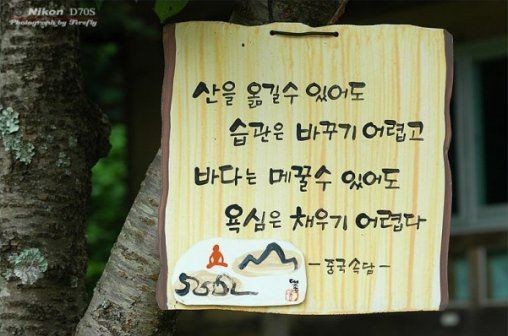 Nikon D70S
Photograph by Firefly
산을 옮길수 있어도
습관은 바꾸기 어렵고
바다는 메꿀수 있어도
욕심은 채우기 어렵다
-중국속담-